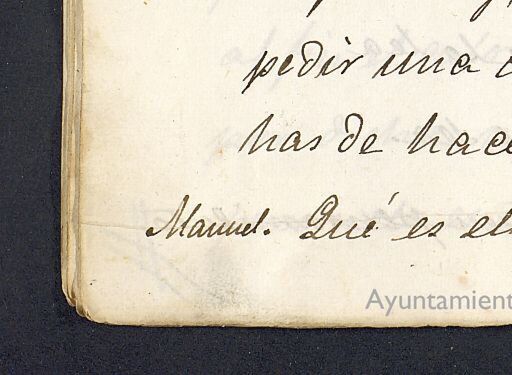 pedir una
has de hace
Manuel. Qué es el
Ayuntamient